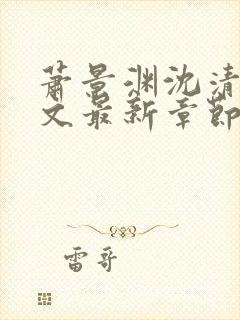 萧景渊沈清
文最新章節
雷哥